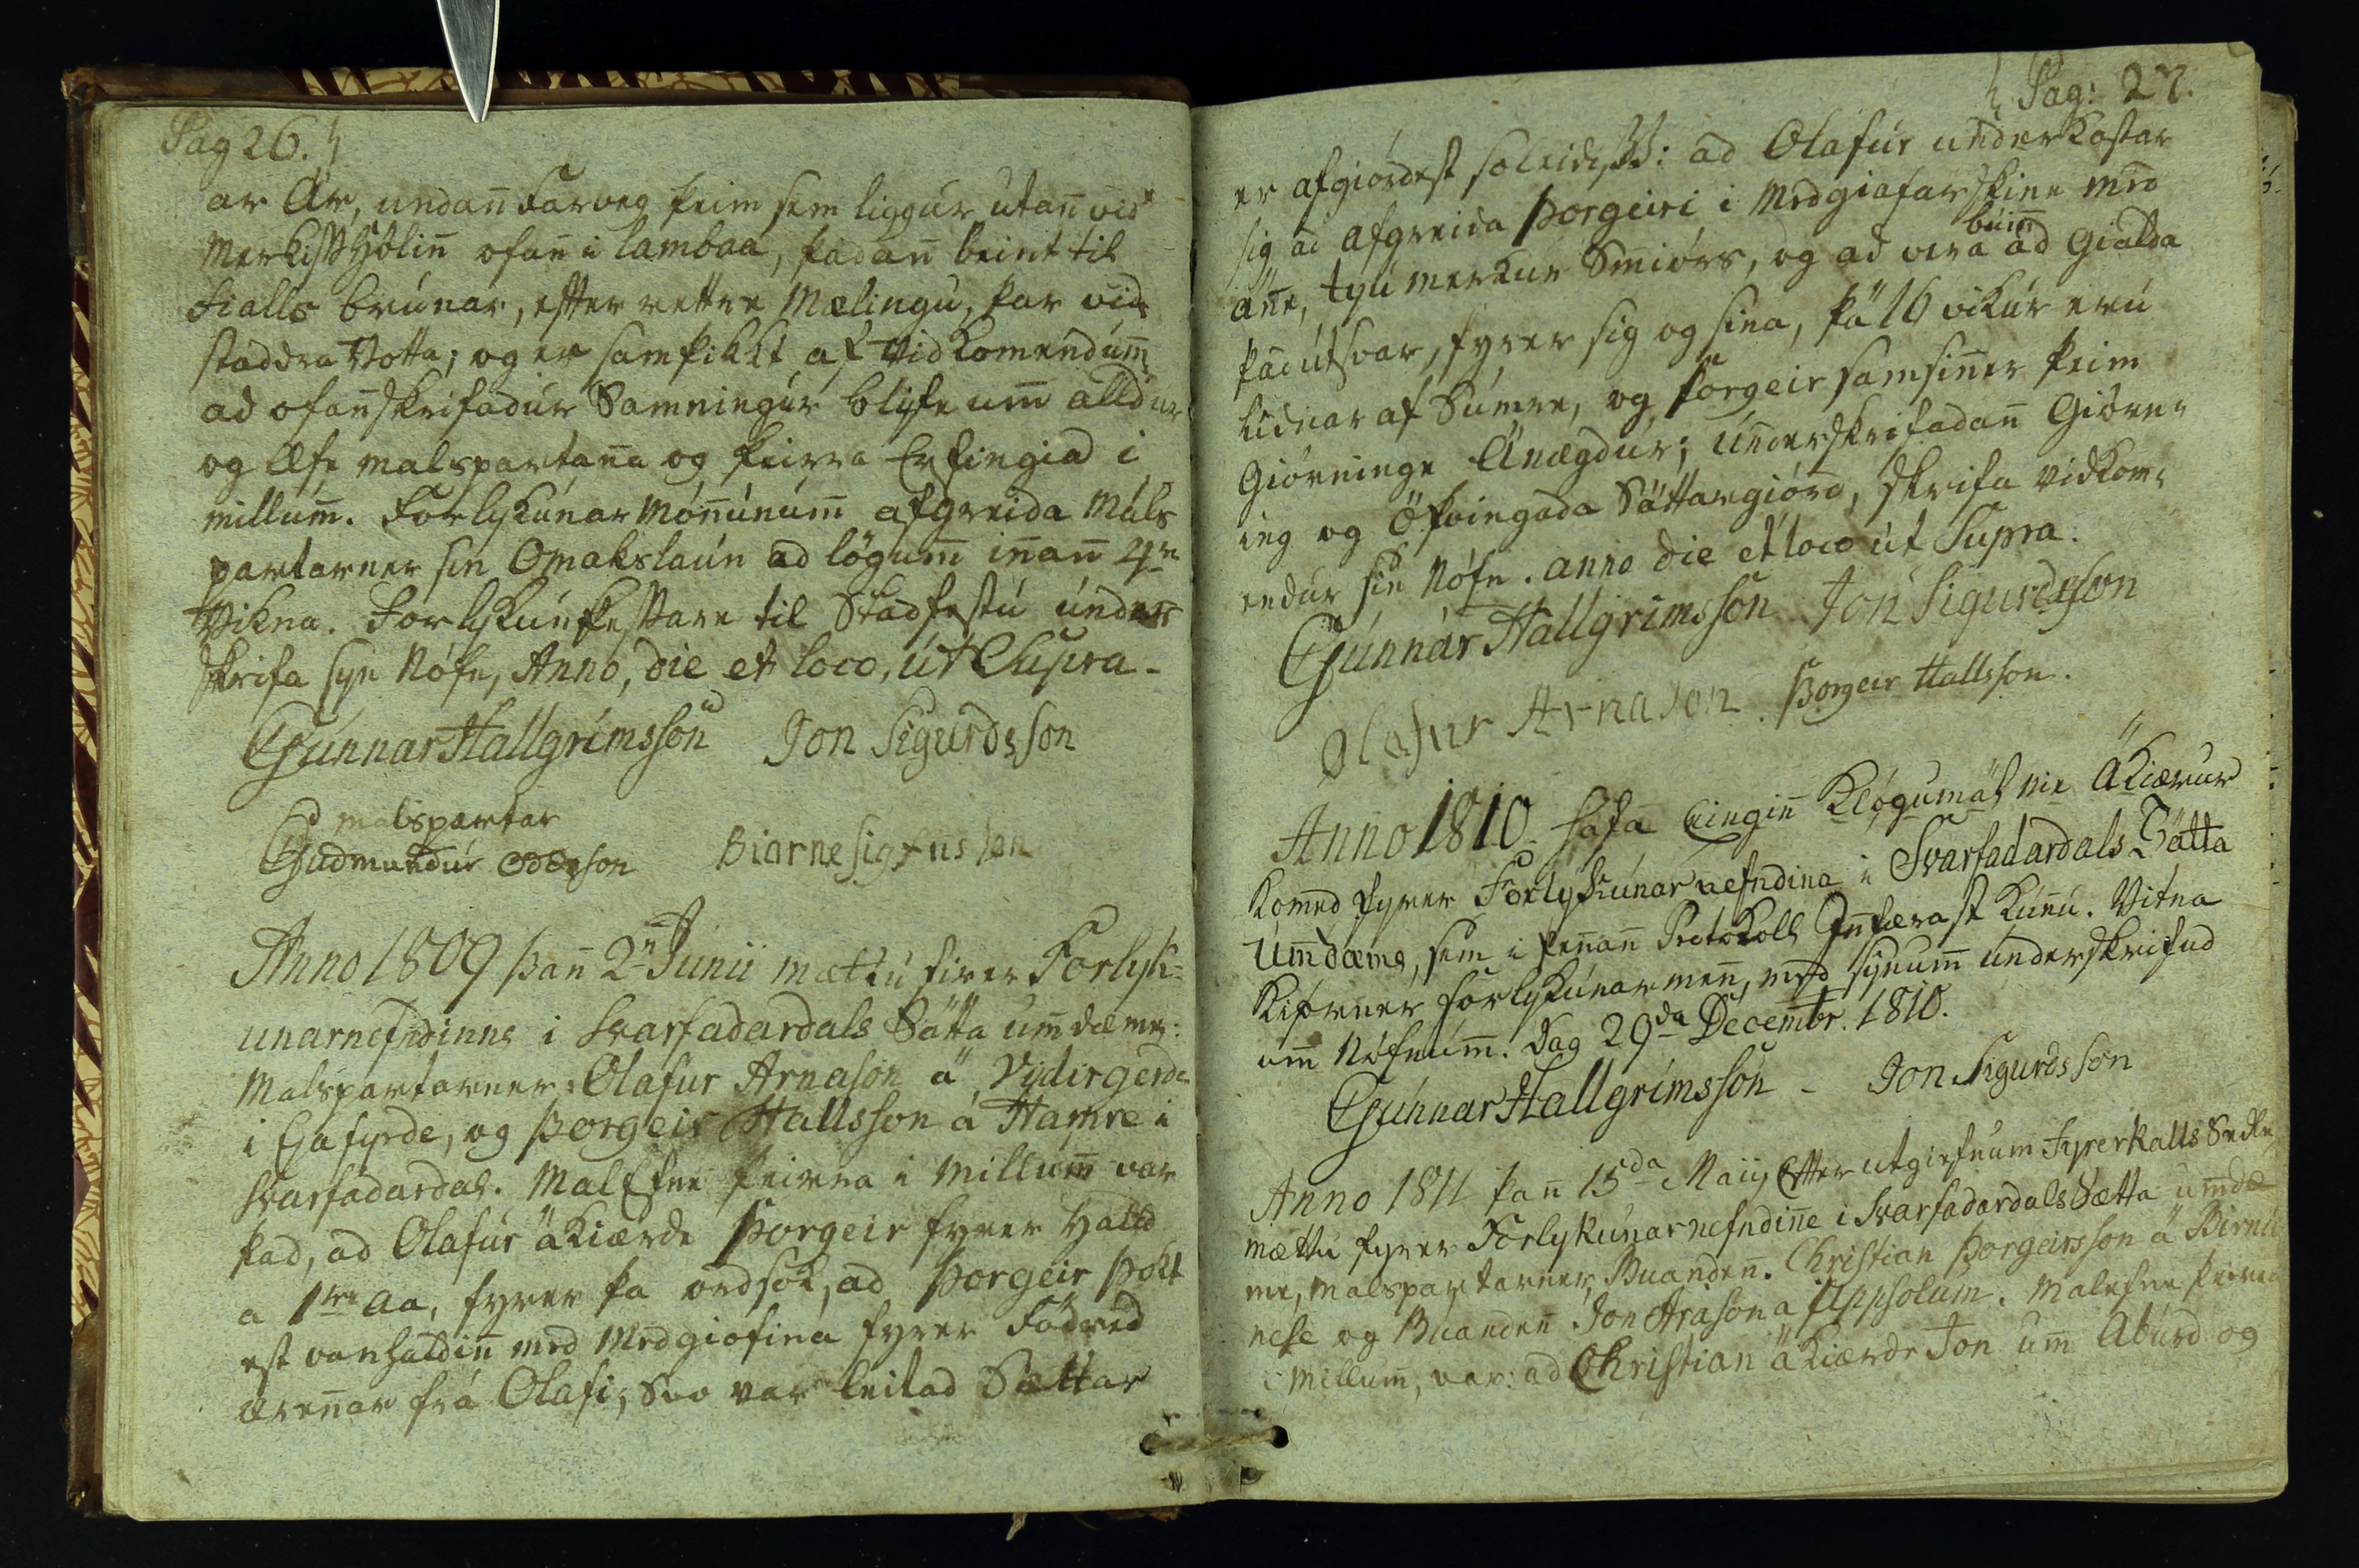 Pag 26.
ar Ár, undann farveg þeim sem liggur utann vid
Merkisshólinn ofan i lambaá, þadann beint til
fialls brúnar, efter rettre Mælingu, þar vid
staddra Votta; og er samþikkt af Vidkomendum
ad ofannskrifadur Samningur blife um alldur
og Æfe malspartana og þeirra Erfingia i
millum. Forlykunar Mönnunum afgreida Máls
partarner sin Omakslaun ad lögum innann 4ra
Vikna. Forlykun þessare til Stadfestu under
skrifa syn Nöfn, Anno, die et loco, út Supra.
Gunnar Hallgrimsson Jon Sigurdsson
malspartar
Gudmundur Oddsson Biarne Sigfusson
Anno 1809 þann 2n Junii mættu firer Forlyk=
unarnefndinne i Svarfadardals Sátta umdæme:
Malspartarner: Olafur Arnason ä Vijdirgerde
i Eiafyrde, og Þorgeir Hallsson á Hamre i
Svarfadardal. Malefne þeirra i millum var
þad, ad Olafur ákiærde Þorgeir fyrer Halld
a 1re Aa, fyrer þa ordsök, ad Þorgeir þokt
est vanhaldinn med Medgiöfina fyrer Fódred
ærennar frá Olafi; Svo var leitad Sættar
Pag: 27.
er afgiördest soleidis: ad Olafur underkastar
sig ad afgreida Þorgeiri i Medgiafarskine med
búinn
anne, tyu merkur Smiörs, og ad vera ad Gialda
þad útsvar, fyrer sig og sina, þá 16 vikur eru
lidnar af Sumre, og Þorgeir samsinner þeim
Giörninge Ánægdur; underskrifadann Giörn-
ing og Óþvingada Sáttargiörd, skrifa vidkom-
endur sin Nöfn. anno die et loco út Supra.
Gunnar Hallgrimsson Jon Sigurdsson
Olafur Arnason Þorgeir Hallsson.
Anno 1810. hafa Eingin Klögumál nie Ákiærur
komed fyrer Forlykunarnefndina i Svarfadardals Sátta
Umdæme, sem i þennann Protokoll Innfærast kunnu. Vitna
Forlykunarmenn, med synum underskrifud
um Nöfnum. Dag 29da Decembr. 1810.
Gunnar Hallgrimsson - Jon Sigurdsson
Anno 1811 þann 15da Maii, Efter utgiefnum Fyrerkalls Sedle
mættu fyrer Forlykunarnefndinne i Svarfadardals Sætta umdæ
me, malspartarner, Buanden. Christian Þorgeirsson á Birnu
nese og Buandenn Jon Arason a Uppsolum. Malefne þeirra
i Millum, var: ad Christian ákiærde Jon um Aburd og